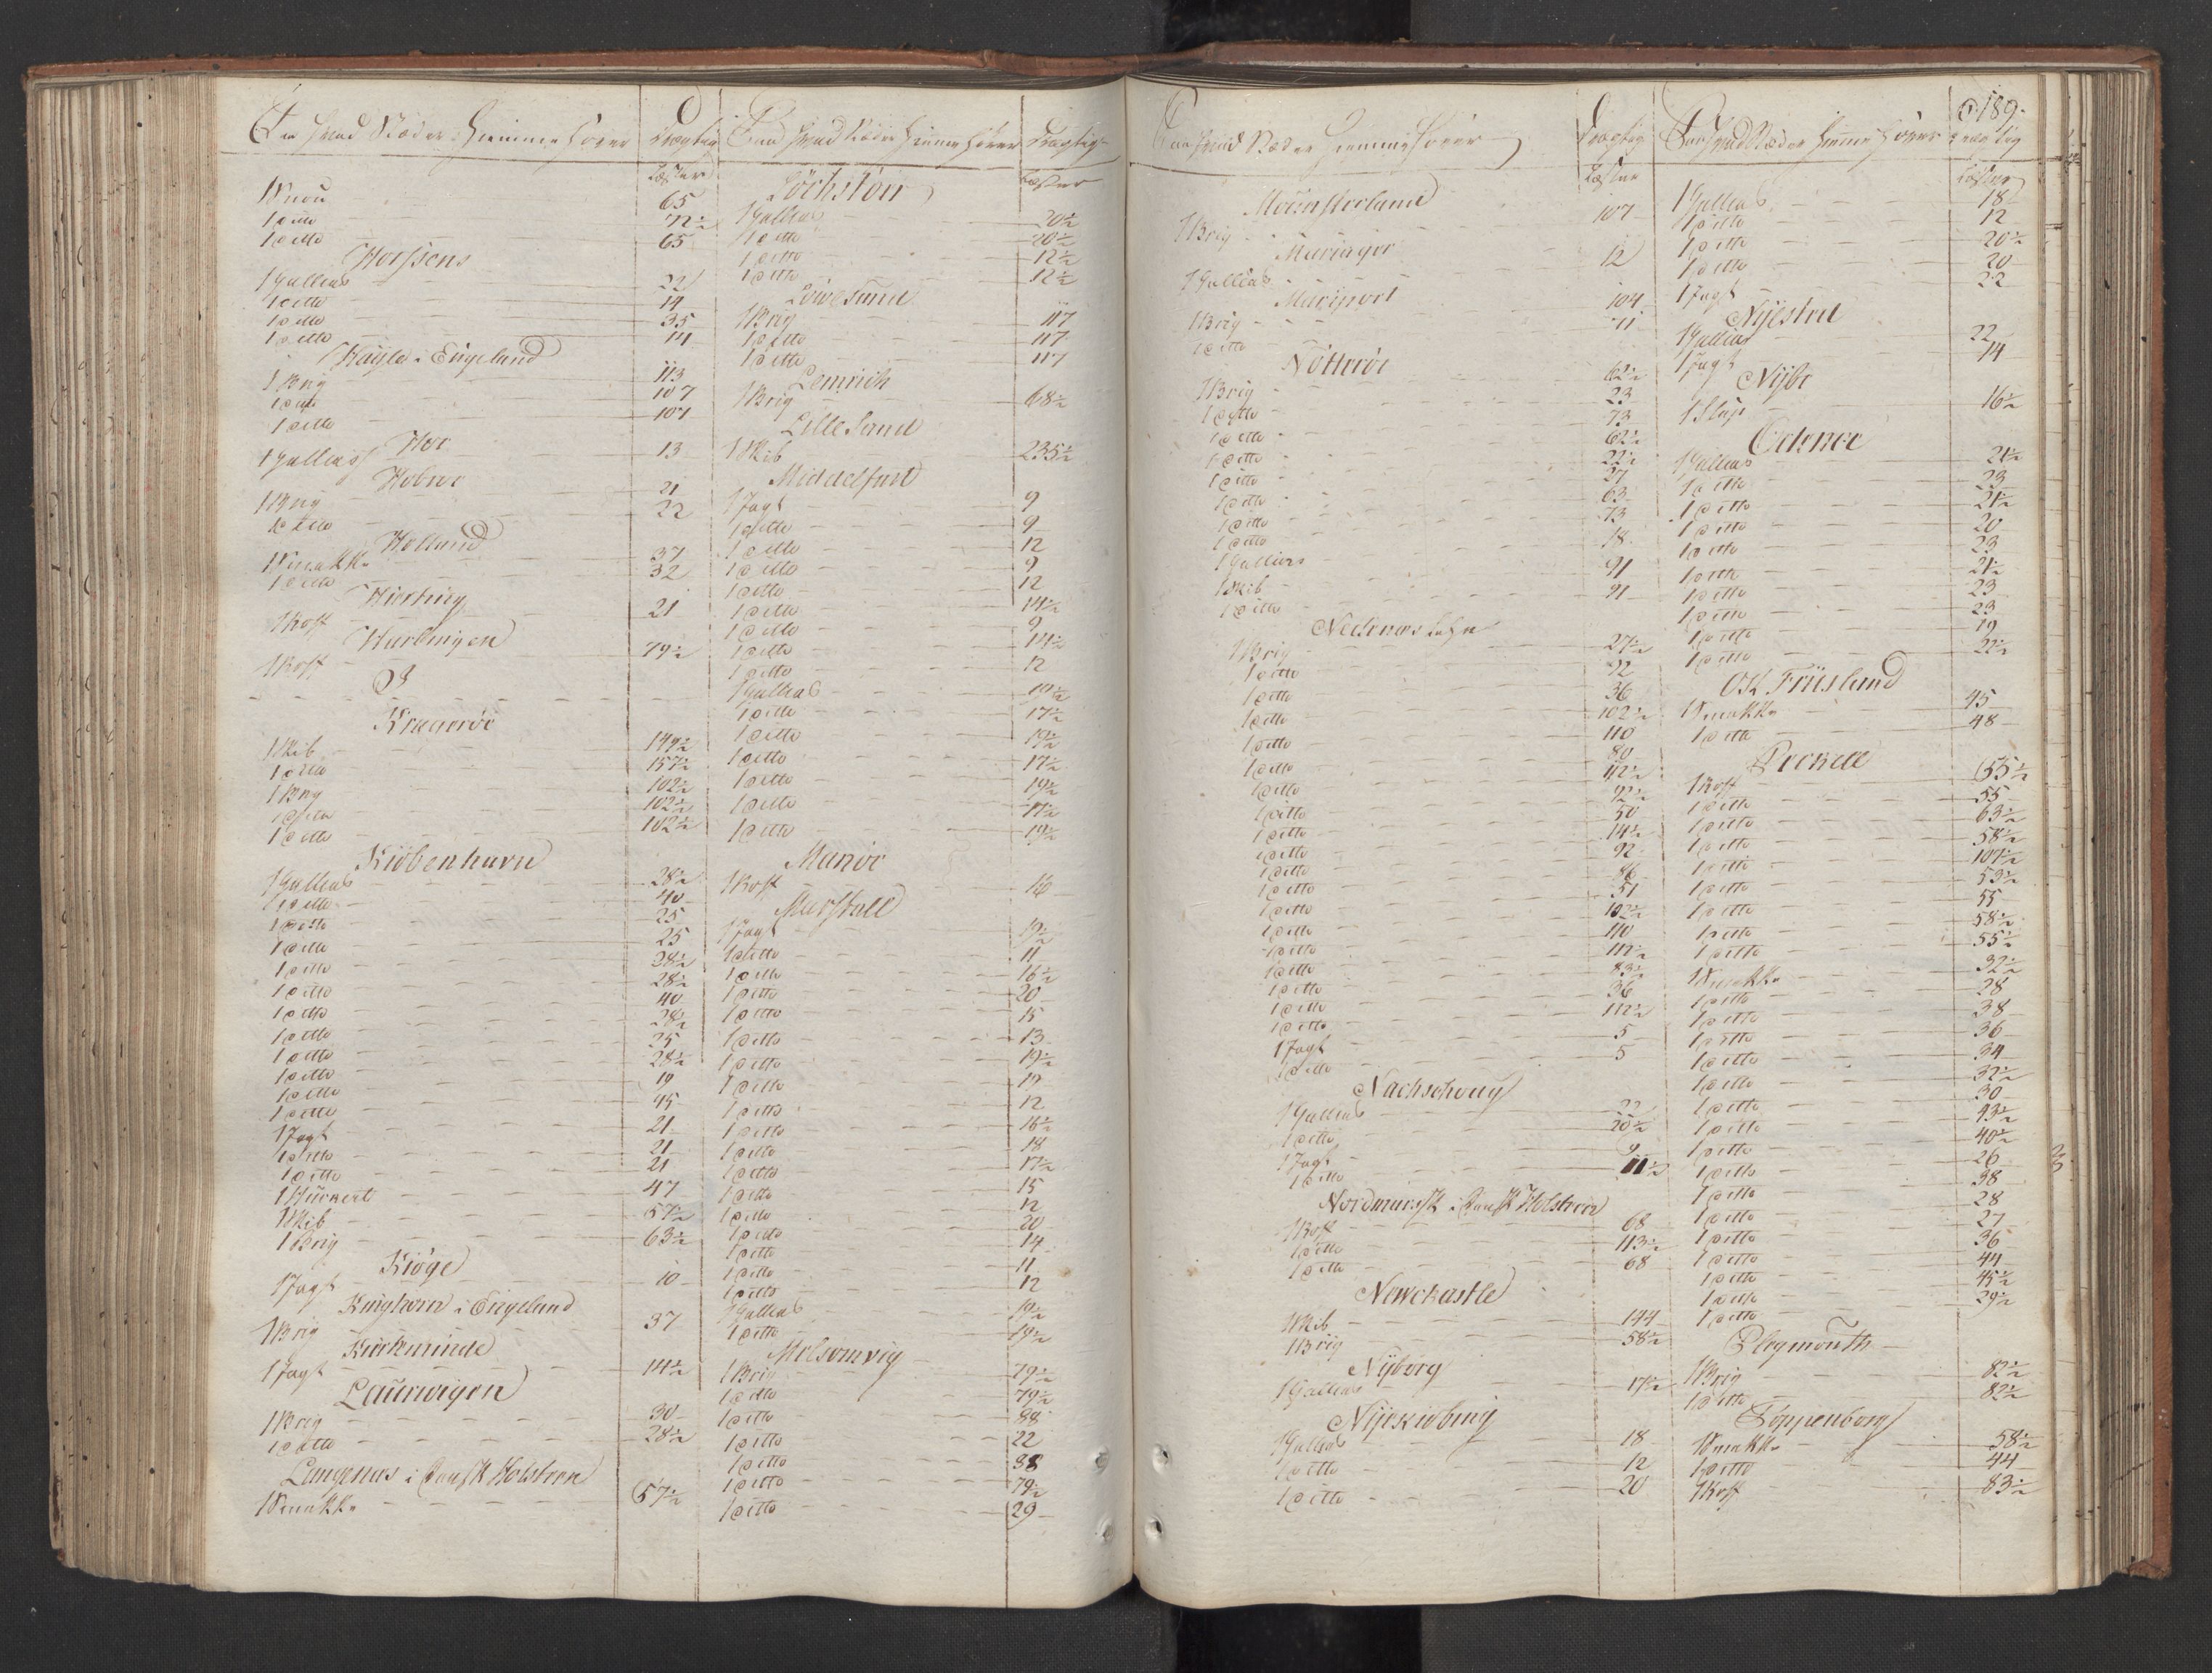 189.
Hiemme Hører
Drægtig
Læster
1 Snou 65
1 Ditto 72½
1 Ditto 65
Horssens
1 Gallias 22
1 Ditto 14
1 Ditto 35
1 Ditto 14
i Engeland
1 Brig 113
1 Ditto 107
1 Ditto 107
1 Gallias 13
Hobroe
1 Brig 21
1 Ditto 22
Holland
1 Smakke 37
1 Ditto 32
1 Koff 21
Harlingen
1 Koff 79½
I
Kragerøe
1 Skib 149½
1 Ditto 157½
1 Brig 102½
1 Ditto 102½
1 Ditto 102½
Kiöbenhavn
1 Gallias 28½
1 Ditto 40
1 Ditto 25
1 Ditto 25
1 Ditto 28½
1 Ditto 28½
1 Ditto 40
1 Ditto 28½
1 Ditto 25
1 Ditto 28½
1 Ditto 19
1 Ditto 45
1 Jagt 21
1 Ditto 21
1 Ditto 21
1 Huckert 47
1 Skib 57½
1 Brig 63½
Kiöge
1 Jagt 10
Kinghorn i Engeland
1 Brig 37
Kierteminde
1 Jagt 14½
Laurwigen
1 Brig 30
1 Ditto 28½
Langenæs i Dansk Holsteen
1 Smakke 57½
Hiemme Hører
Drægtig
Læster
Löchstöer
1 Gallias 20½
1 Ditto 20½
1 Ditto 12½
1 Ditto 12½
1 Brig 117
1 Ditto 117
1 Ditto 117
Lemvich
1 Brig 68½
Lille Sand
1 Skib 235½
Middelfart
1 Jagt 9
1 Ditto 9
1 Ditto 12
1 Ditto 9
1 Ditto 12
1 Ditto 14½
1 Ditto 9
1 Ditto 14½
1 Ditto 12
1 Gallias 19½
1 Ditto 17½
1 Ditto 19½
1 Ditto 17½
1 Ditto 19½
1 Ditto 17½
1 Ditto 19½
Manöe
1 Koff 16
Marstall
1 Jagt 19½
1 Ditto 11
1 Ditto 16½
1 Ditto 20
1 Ditto 15
1 Ditto 13
1 Ditto 19½
1 Ditto 17
1 Ditto 12
1 Ditto 18½
1 Ditto 18
1 Ditto 17½
1 Ditto 15
1 Ditto 12
1 Ditto 20
1 Ditto 14
1 Ditto 11
1 Ditto 12
1 Gallias 19½
1 Ditto 19½
Melsomvig
1 Brig 79½
1 Ditto 79½
1 Ditto 88
1 Ditto 22
1 Ditto 88
1 Ditto 79½
1 Ditto 29
Hiemme Hører
Drægtig
Læster
Münsterland
1 Brig 107
Mariager
1 Gallias 12
Mariport
1 Brig 104
1 Ditto 71
Nötteröe
1 Brig 62½
1 Ditto 23
1 Ditto 73
1 Ditto 62½
1 Ditto 22½
1 Ditto 27
1 Ditto 63
1 Ditto 73
1 Gallias 18
1 Skib 91
1 Ditto 91
Nedenæs Lehn
1 Brig 27½
1 Ditto 92
1 Ditto 36
1 Ditto 102½
1 Ditto 110
1 Ditto 80
1 Ditto 112½
1 Ditto 92½
1 Ditto 50
1 Ditto 14½
1 Ditto 92
1 Ditto 86
1 Ditto 51
1 Ditto 102½
1 Ditto 110
1 Ditto 112½
1 Ditto 83½
1 Ditto 36
1 Ditto 112½
1 Jagt 5
1 Ditto 5
Nachschoug
1 Gallias 22
1 Ditto 20½
1 Jagt 9
1 Ditto 11½
Nordmarsk i Dansk Holsteen
1 Koff 68
1 Ditto 113½
1 Ditto 68
Newckastle
1 Skib 144
1 Brig 58½
Nyborg
1 Gallias 17½
Nykiöbing
1 Gallias 18
1 Ditto 12
1 Ditto 20
Hiemme Hører
Drægtig
Læster
1 Gallias 18
1 Ditto 12
1 Ditto 20½
1 Ditto 20
1 Jagt 22
Nysted
1 Gallias 22
1 Jagt 14
Nybe
1 Slup 16½
Odense
1 Gallias 21½
1 Ditto 23
1 Ditto 21½
1 Ditto 20
1 Ditto 23
1 Ditto 21½
1 Ditto 23
1 Ditto 23
1 Ditto 19
1 Ditto 22½
Ost Friisland
1 Smakke 45
1 Ditto 48
Pekele
1 Koff 55½
1 Ditto 55
1 Ditto 63½
1 Ditto 58½
1 Ditto 107½
1 Ditto 53½
1 Ditto 55
1 Ditto 58½
1 Ditto 55½
1 Smakke 32½
1 Ditto 28
1 Ditto 38
1 Ditto 36
1 Ditto 34
1 Ditto 32½
1 Ditto 30
1 Ditto 43½
1 Ditto 40½
1 Ditto 26
1 Ditto 38
1 Ditto 28
1 Ditto 27
1 Ditto 36
1 Ditto 44
1 Ditto 45½
1 Ditto 29½
Plegmouth
1 Brig 82½
1 Ditto 82½
Poppenborg
1 Smakke 58½
1 Ditto 44
1 Koff 83½